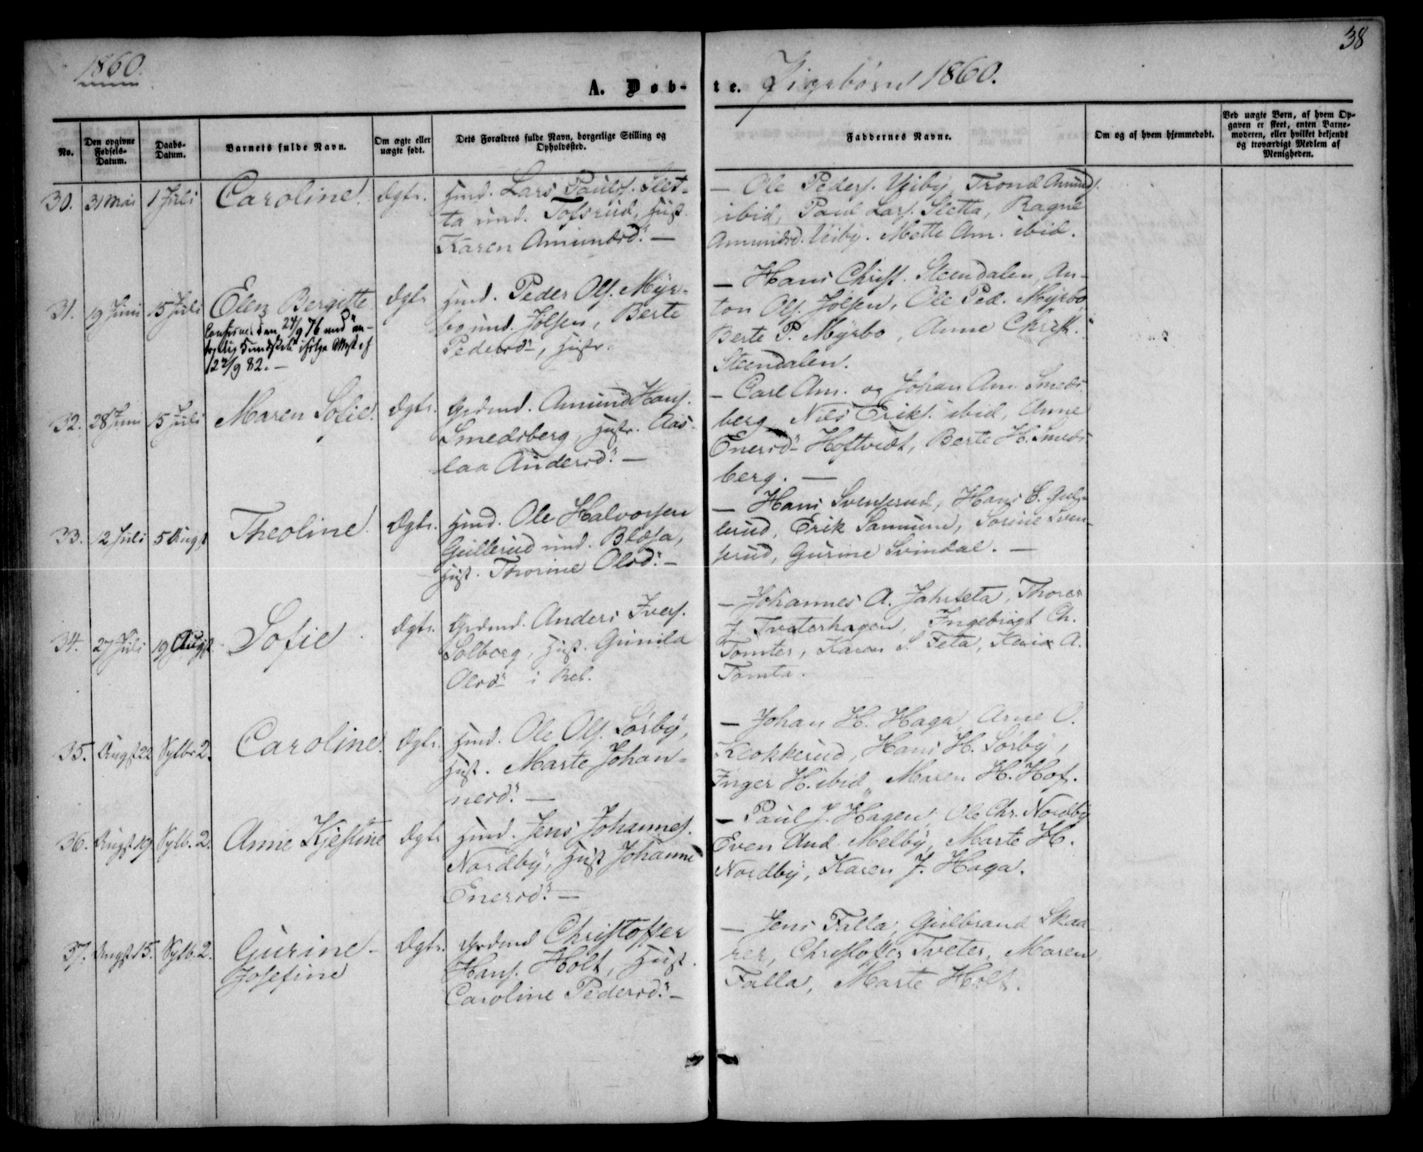 1860.
38
A. Døb-
te. Pigebørn 1860.
No.
Den opgivne Fødsels-Datum.
Daabs-Datum.
Barnets fulde Navn.
Om ægte eller uægte født.
Dets Forældres fulde Navn, borgerlige Stilling og Opholdssted.
Faddernes Navne.
Om og af hvem hjemmedøbt.
Ved uægte Børn, af hvem Opgaven er skeet, enten Barnemoderen, eller hvilket bekjendt og troværdigt Medlem af Menigheden.
30. 31 Mai 1 Juli Caroline. Ægte. Husmd. Lars Pauls. Slet-
ta und. Tofsrud, Hust.
Karen Amundsd. —
— Ole Peders. Viiby, Trond Amunds.
ibid, Paul Lars. Sletta, Ragne
Amundsd. Viiby. Mette Am. ibid.
31. 19 Juni 15 Juli Elen Bergitte Ægte Husmd. Peder Ols. Myr-
bo und. Jølsen, Berte
Pedersd., Hustr.
— Hans Christ. Steendalen, An-
ton Ols. Jølsen, Ole Ped. Myrbo
Berte P. Myrbo, Anne Christ.
Steendalen.
32. 28 Juni 15 Juli Maren Sofie. Ægte. Grdmd. Amund Hans.
Smedsberg, Hustr. Aas-
laa Andersd. —
— Carl Am. og Johan Am. Smeds
berg, Nils Eriks. ibid, Anne
Enersd. Hoftvedt, Berte H. Smeds
berg. —
33. 12 Juli 5 Augst Theoline. Ægte. Husmd. Ole Halvorsen
Gullerud und. Blæsa,
Hust. Thorine Olsd. —
— Hans Svenserud, Hans C. Gul-
lerud, Erik Samuend, Sorine Sven-
serud, Gurine Svindal. —
34. 27 Juli 19 Augst Sofie. Ægte. Grdmd. Anders Ivers.
Solberg, Hust. Gunild
Olsd. i Rel.
— Johannes A. Jahreta, Thorer
J. Tveterhagen, Ingebrigt Ch.
Tomter, Karen S. Feta, A.
Tomta.
35. Augst 22 Sptbr. 2. Caroline. Ægte. Husmd. Ole Ols. Sørby,
Hust. Marte Johan-
nesd. —
— Johan H. Haga, Arne O.
Klokkerud, Hans H. Sørby,
Inger H. ibid, Maren H. Hof.
36. Augst 19 Sptb. 2. Anne Kjestine Ægte Husmd. Jens Johannes.
Nordby, Hust Johanne
Enersd. —
— Paul J. Hagen, Ole Chr. Nordby
Even And. Melby, Marte H.
Nordby, Karen J. Haga.
37. Augst 15. Sptb. 2. Gurine Josefine Ægte. Grdmd Christoffer
Hans. Holt, Hust.
Caroline Pedersd. —
— Jens Falla, Gulbrand Skaa-
rer, Christoffer Tveter, Maren
Falla, Marte Holt.